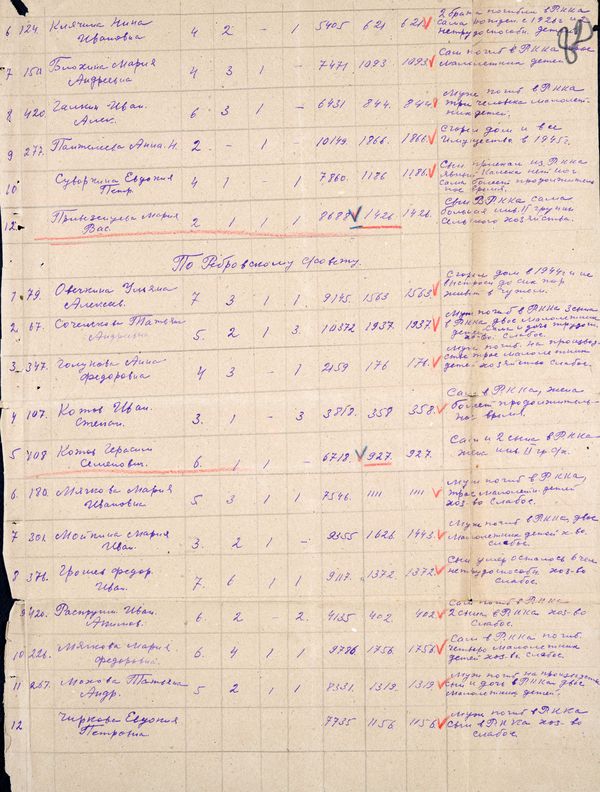 6 124. Клячина Нина Ивановна 4 2 - 1 5405 621 621 2 брата погибли в РККА сама
нетрудоспособн. дет
7 150. Блохина Мария Андреевна 4 3 1 - 7471 1093 1093 Сын погиб в РККА
малолетних детей
8 420. Галкин Иван. Алек. 6 3 1 - 6431 844. 844 Муж погиб в РККА
три человека малолет-
них детей.
9 277. Пантелеева Анна. Н. 2. - 1 - 10149. 1866. 1866. Сгорел дом и все
имущество в 1945 г.
10 Суворкина Евдокия Петр. 4 1 - 1 7860. 1186 1186. Сын приехал из РККА
12. Мария Вас. 2 1 1 1 8687 1426. 1426. Сын в РККА сама
больная инв. II группы
сельского хозяйства.
По Ребровскому с/совету.
1 79. Овечкина Ульяна Алексеев. 7 3 1 1 9145 1563 1563 Сгорел дом в 1944 г. и не
до сих пор
живет в чужом.
2 67. Татьяна Андреевна 5. 2 1 3. 10372 1937. 1937 Муж погиб в РККА 3 сына
в РККА, двое малолетних
хо-во. Слабое.
3. 347. Голунова Анна Федоровна 4 3 - 1 2159 176 176. Муж погиб. на производ-
стве трое малолетних
детей хозяйство слабое.
4 107. Котов Иван. Степан. 3. 1 - 3 3859. 358 358. Сын в РККА, жена
болеет продолжитель-
ное время.
5 408 Котов Герасим Семенович. 6. 1 1 - 6718. 927. 927. Сам и 2 сына в РККА
жена инв. II гр. с/х.
6. 180. Мячкова Мария Ивановна 5 3 1 1 7546. 1111 1111 Муж погиб в РККА,
трое малолетн. детей
хоз-во слабое.
7 301. Мария Иван. 3. 2 1 - 9355 1626. 1443. Муж погиб в РККА, двое
малолетних детей х-во
слабое.
8 376. Грошев Федор. Иван. 7. 6 1 1 9117. 1372. 1372. Сын умер осталось 6 чел
нетрудоспособн. хоз-во
слабое.
9 420. Распутин Иван. 6. 2 - 2. 4135 402 402 Сын погиб в РККА
2 сына в РККА хоз-во
Слабое.
10 226. Мячкова Мария Федоровна. 6. 4 1 1 9786 1756. 1756 Сын в РККА погиб.
четверо малолетних
детей хоз-во слабое.
11 267. Махова Татьяна Андр. 5 2 1 1 8331. 1319. 1319 Муж погиб на производстве
сын и дочь в РККА двое
малолетних детей.
12 Чиркова Евдокия Петровна 7735 1156 1156 Муж погиб в РККА
сын в РККА хоз-во
слабое.